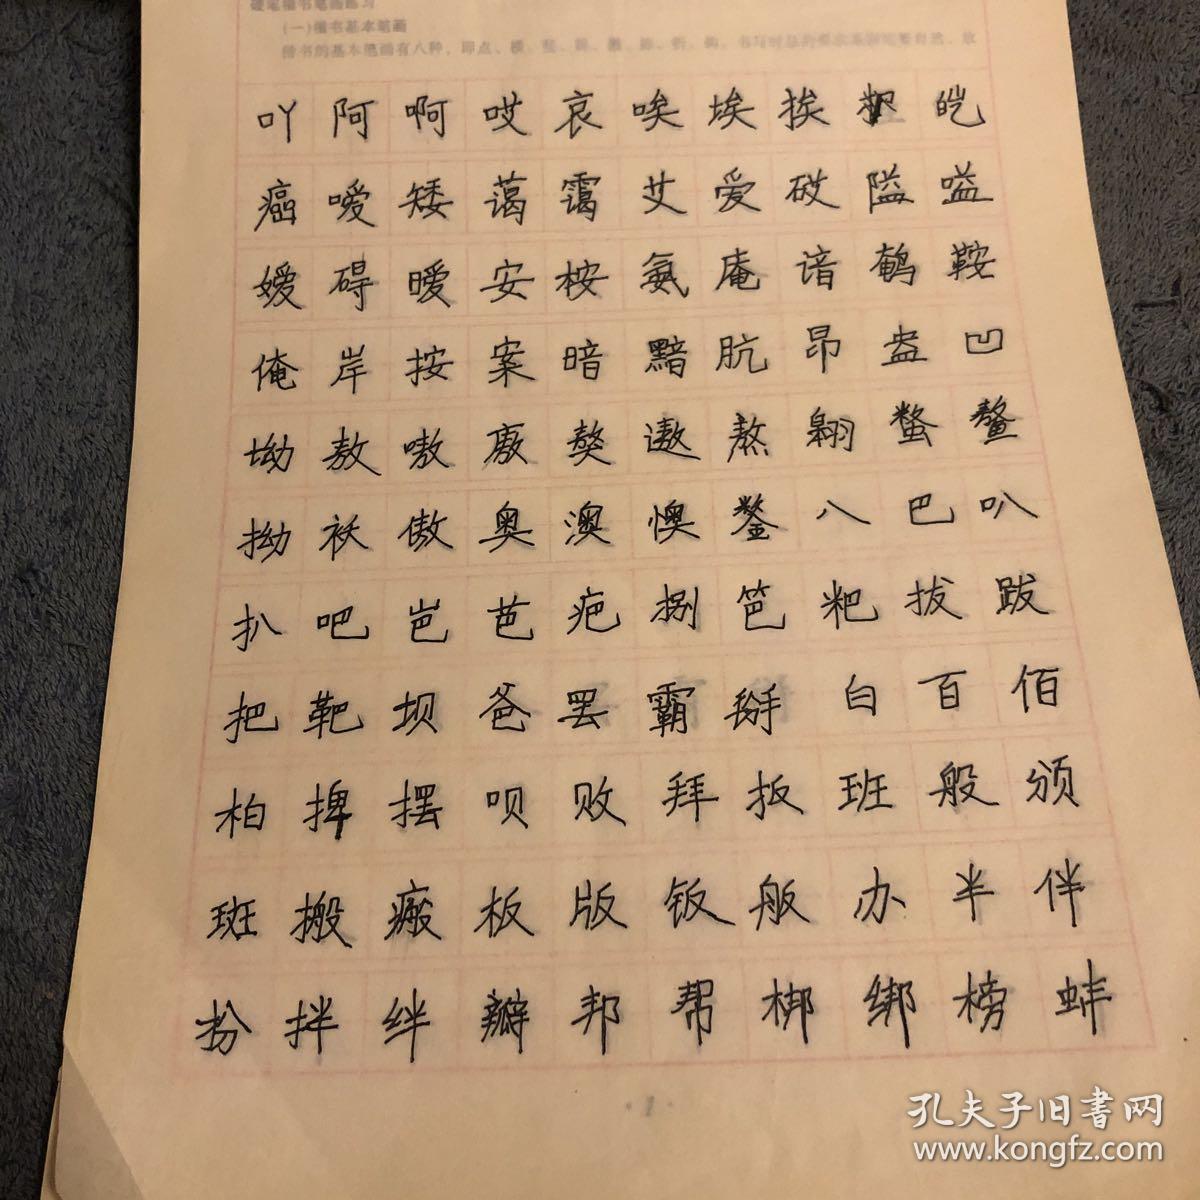 硬笔楷书笔画练习
(一)楷书基本笔画
楷书的基本笔画有八种，即点、横、竖、
吖阿啊哎哀唉埃挨皑
癌嗳矮蔼霭艾爱砹隘嗌
嫒碍暧安桉氨庵谙鹌鞍
俺岸按案暗黯肮昂盎凹
坳敖嗷廒獒遨熬翱螯鳌
拗袄傲奥澳懊鏊八巴叭
扒吧岜芭疤捌笆粑拔跋
把靶坝爸罢霸掰白百佰
柏捭摆呗败拜扳班般颁
斑搬瘢板版钣舨办半伴
扮拌绊瓣邦帮梆绑榜蚌
·1·
孔夫子旧書网
www.kongfz.com